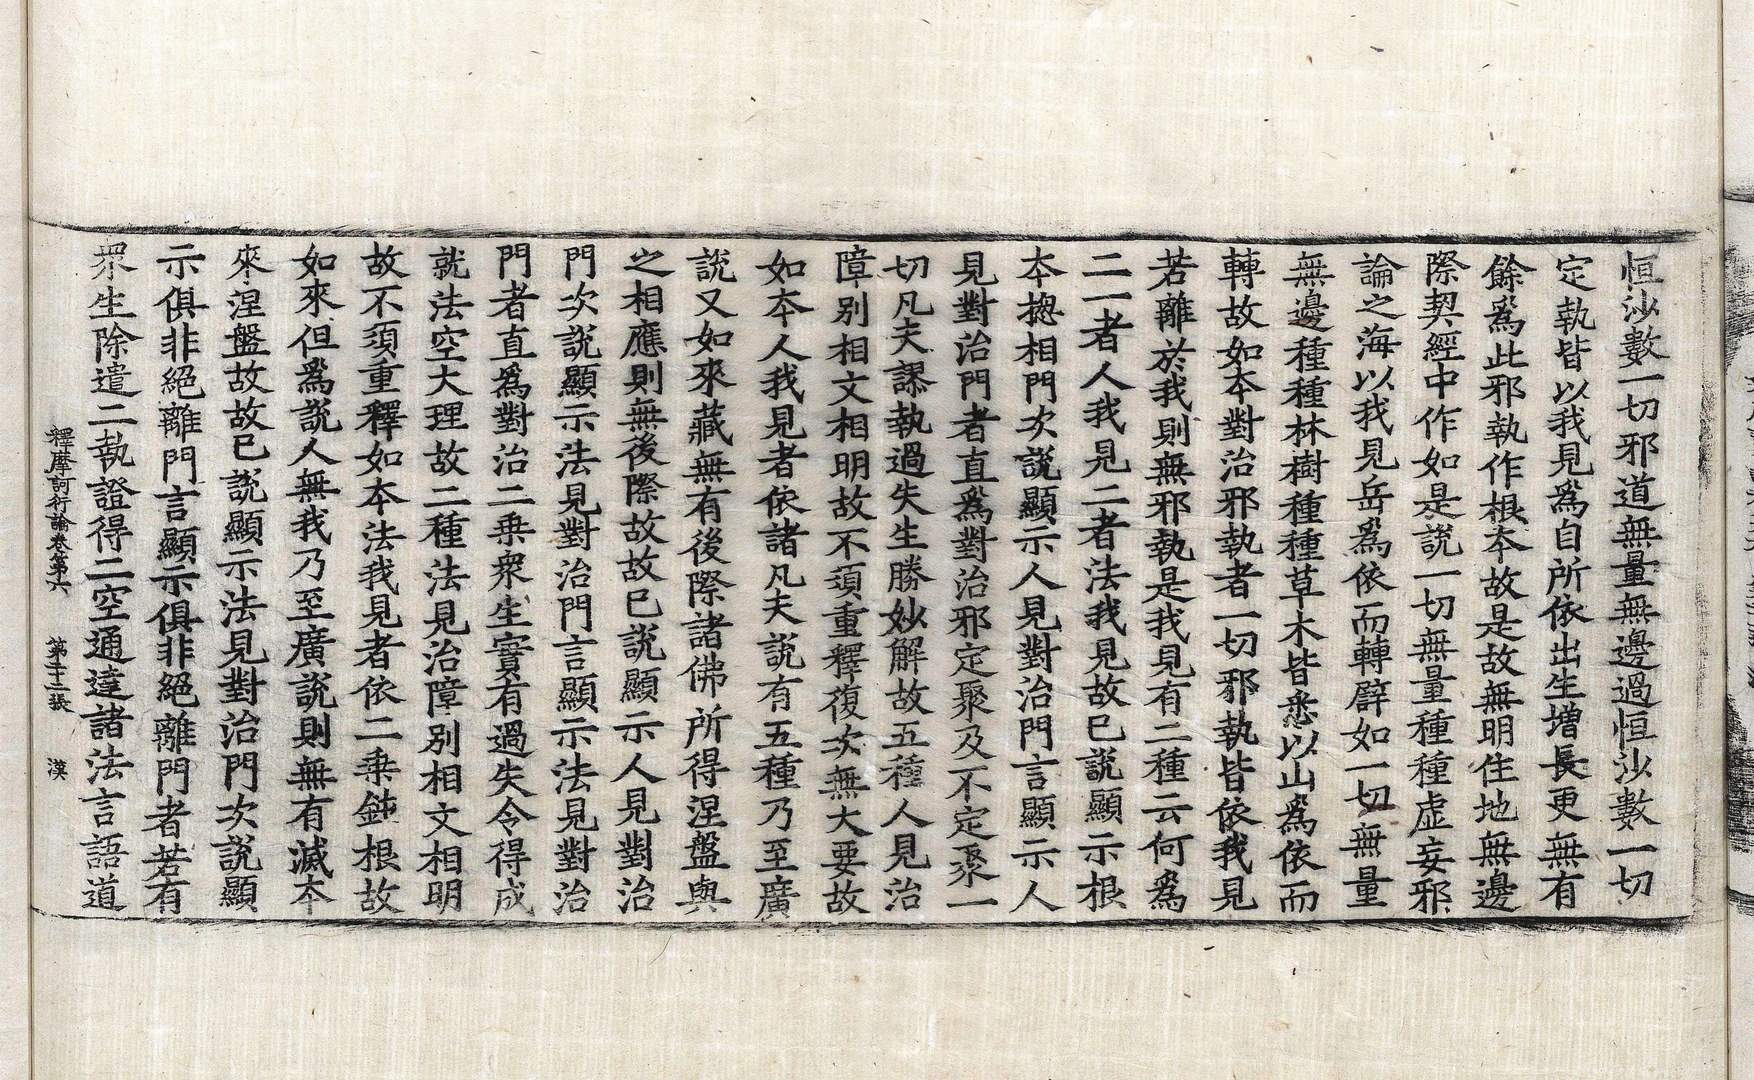 恒沙數一切邪道無量無邊過恒沙數一切
定執皆以我見爲自所依出生增長更無有
餘爲此邪執作根夲故是故無明住地無邊
際契經中作如是說一切無量種種虛妄邪
論之海以我見岳爲依而轉辟如一切無量
無邊種種林樹種種草木皆悉以山爲依而
轉故如夲對治邪執者一切邪執皆依我見
若離於我則無邪執是我見有二種云何爲
二一者人我見二者法我見故已說顯示根
夲揔相門次說顯示人見對治門言顯示人
見對治門者直爲對治邪定聚及不定聚一
切凡夫謬執過失生勝妙解故五種人見治
障別相文相明故不須重釋復次無大要故
如夲人我見者依諸凡夫說有五種乃至廣
說又如來藏無有後際諸佛所得涅盤與
之相應則無後際故故已說顯示人見對治
門次說顯示法見對治門言顯示法見對治
門者直爲對治二乘衆生實有過失令得成
就法空大理故二種法見治障別相文相明
故不須重釋如夲法我見者依二乘鈍根故
如來但爲說人無我乃至廣說則無有滅夲
來涅盤故故已說顯示法見對治門次說顯
示俱非絕離門言顯示俱非絕離門者若有
眾生除遣二執證得二空通達諸法言語道
釋摩訶衍論卷第六　第二十二張　漢